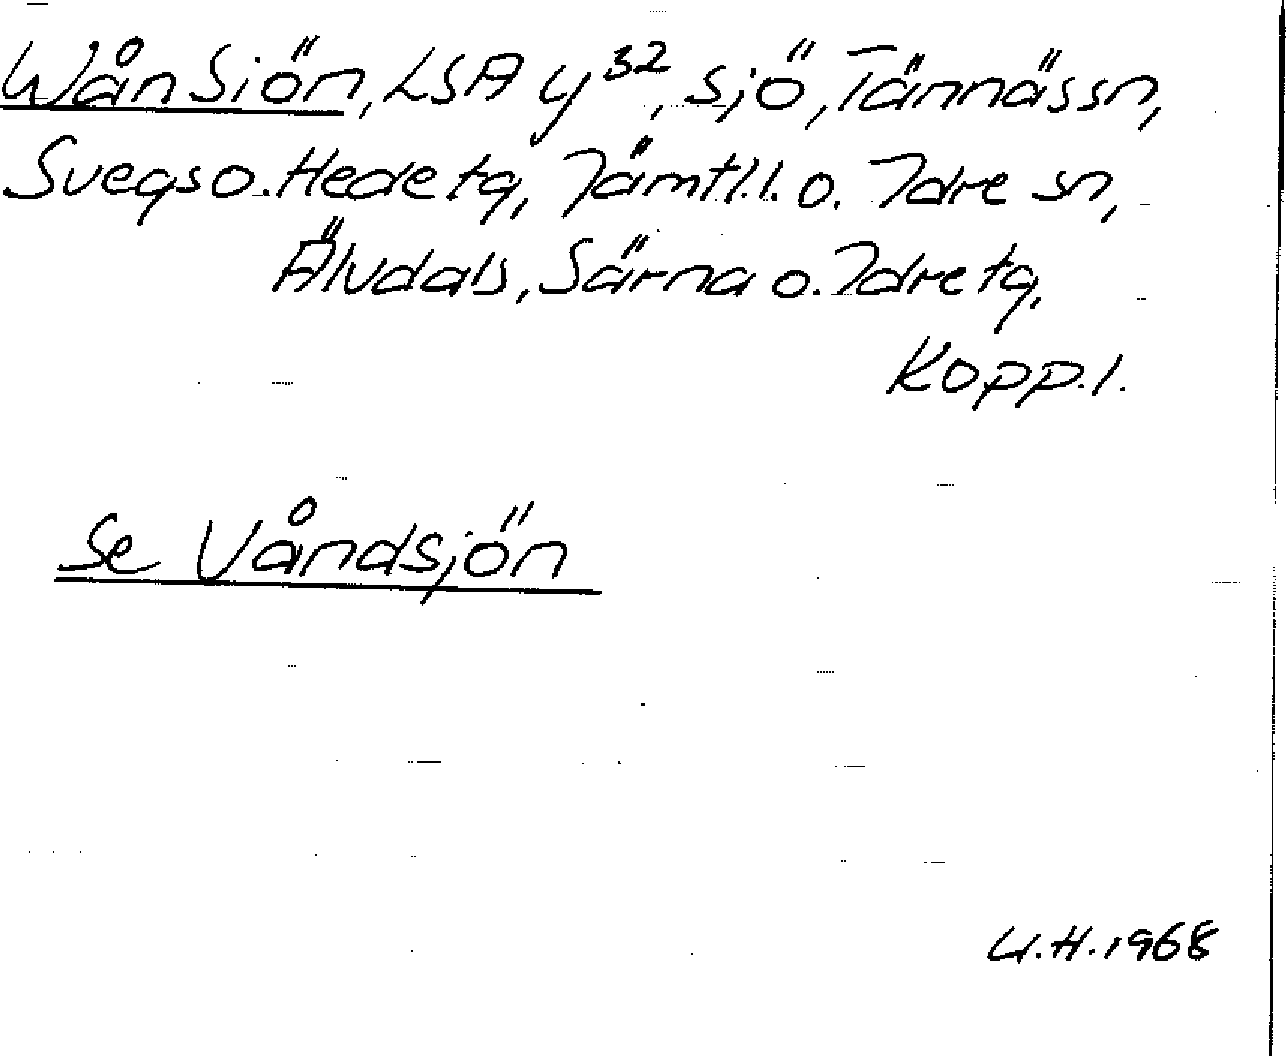 Wån Siön, LSA y³², sjö, Tännäs sn,
Svegs o. Hede tg, Jämtl. l. o. Idre sn,
Älvdals, Särna o. Idre tg,
Kopp. l.
Se Våndsjön
U.H. 1968